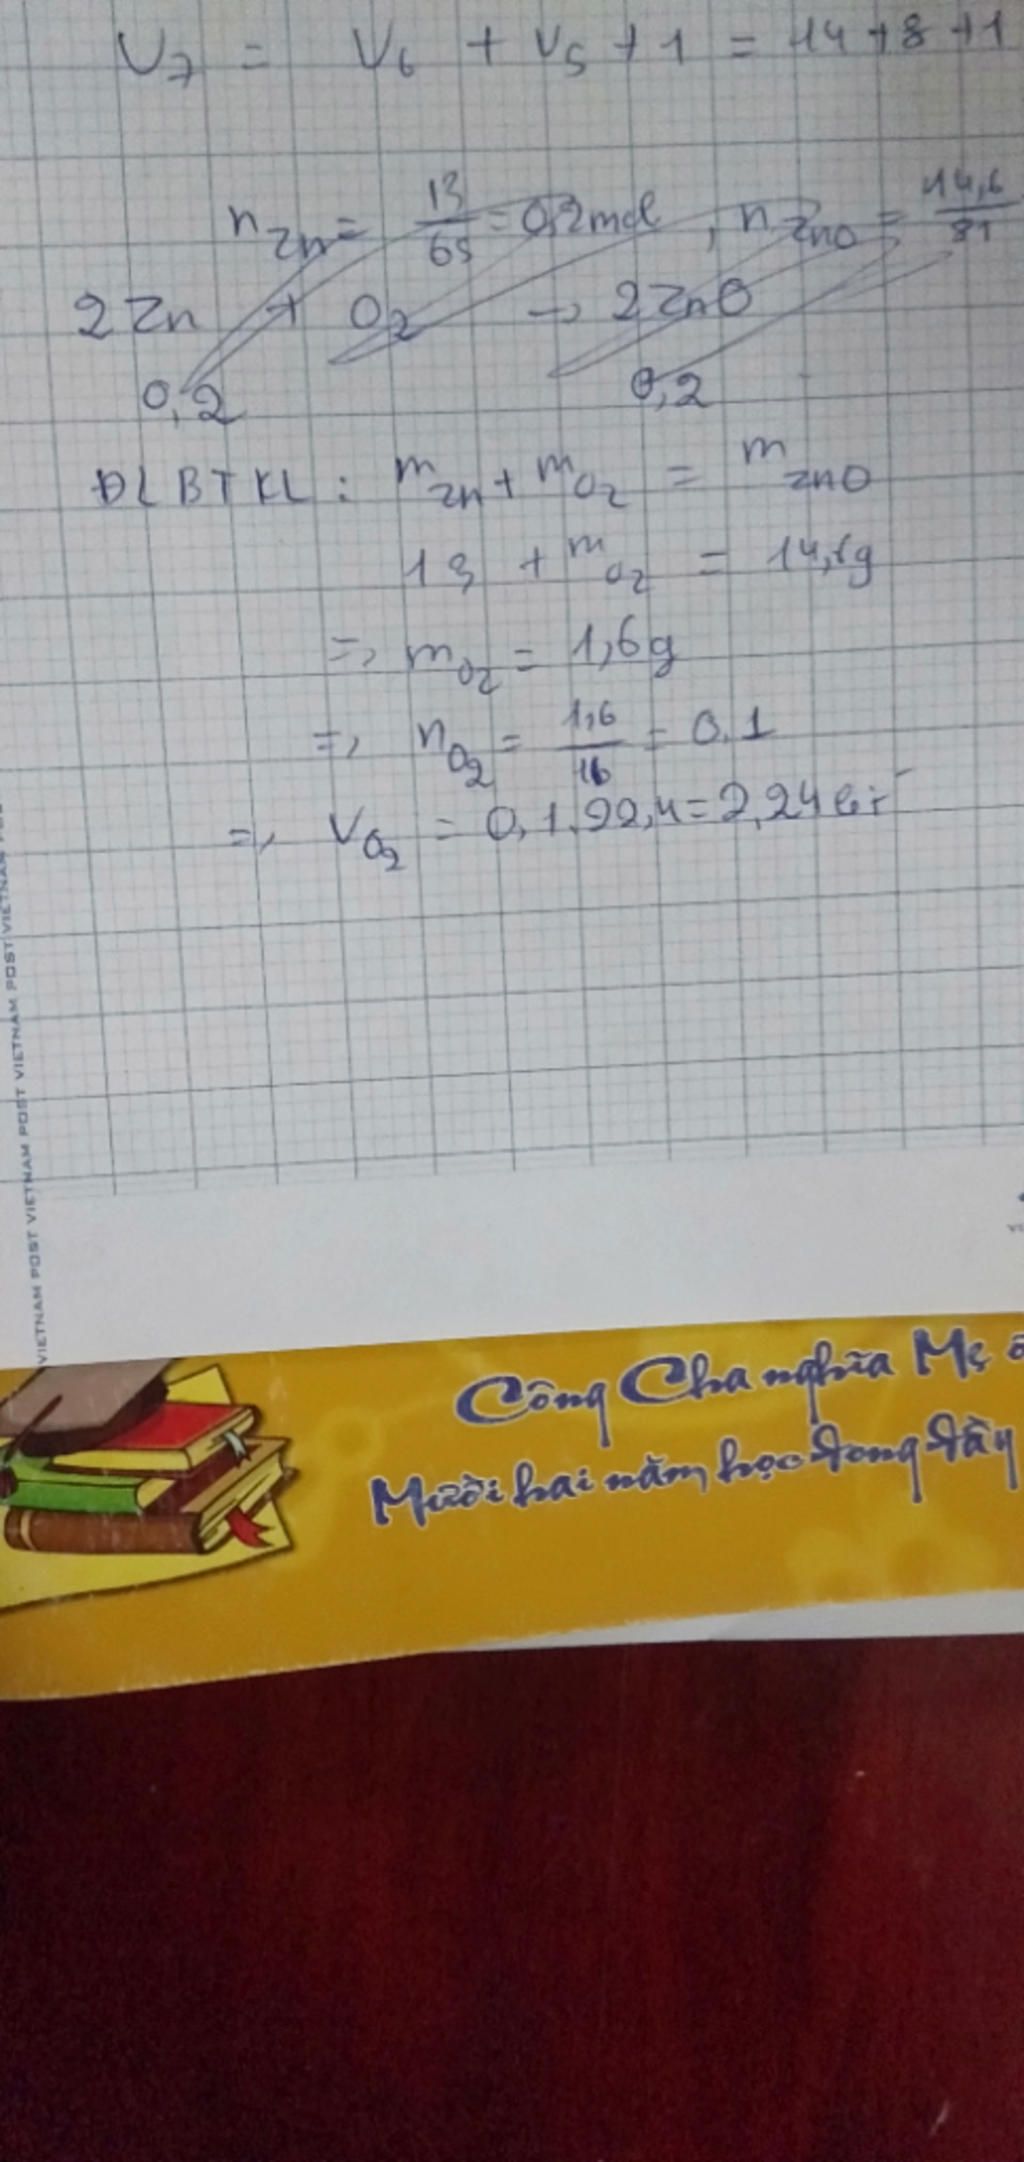 U₇ = V₆ + V₅ + 1 = 14 + 8 + 1
n Zn = 13/65 = 0,2 mol , n ZnO = 14,6/81
2 Zn + O₂ → 2 ZnO
0,2 0,2
ĐLBTKL : m Zn + m O₂ = m ZnO
13 + m O₂ = 14,6g
=> m O₂ = 1,6g
=> n O₂ = 1,6/16 = 0,1
=> V O₂ = 0,1.22,4 = 2,24 lít
VIETNAM POST VIETNAM POST VIETNAM POST VIETNAM POST VIETNAM
Công Cha nghĩa Mẹ
Mười hai năm học đong đầy